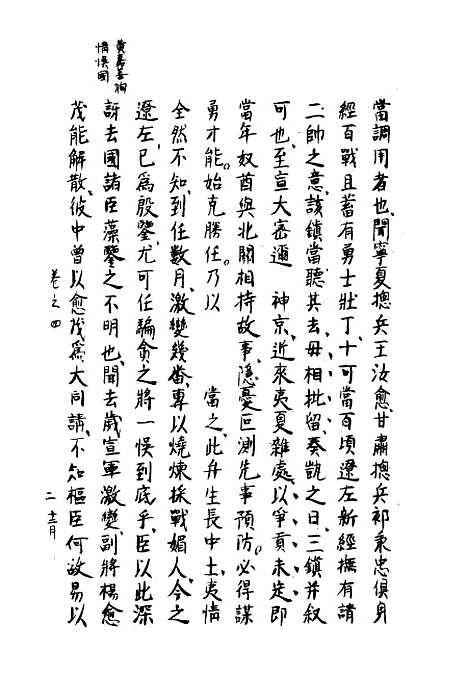 黄嘉善徇
情悞國
當調用者也聞寧夏揔兵王汝愈甘肅揔兵祁秉忠俱身
經百戰且蓄有勇士壯丁十可當百頃遼左新經撫有請
二帥之意該鎮當聽其去毋相批留奏凱之日三鎮并叙
可也至宣大密邇　神京近來夷夏雜處以爭貢未定即
當年奴酋與北關相持故事隱憂叵測先事預防必得謀
勇才能始克勝任乃以　　　當之此弁生長中土夷情
全然不知到任數月激變幾畨專以燒煉採戰媚人今之
遼左已為殷鑒尤可任騙貪之將一悞到底乎臣以此深
訝去國諸臣藻鑒之不明也聞去歲宣軍激變副將楊愈
茂能解散彼中曾以愈茂為大同請不知樞臣何故易以
卷之四
二
十二月